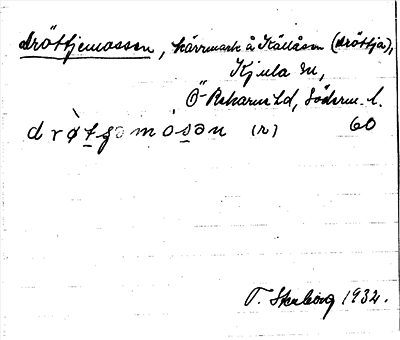 Dröttjemossen, kärrmark å Källåsen (Dröttja),
Kjula sn,
Ö-Rekarne hd, Söderm. l.
drò̀tjəmòsən (r) 60
T. Skarborg 1932.